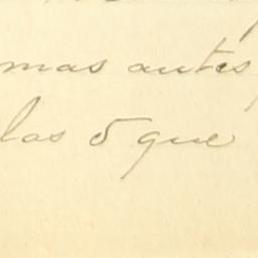 mas antes
las o que